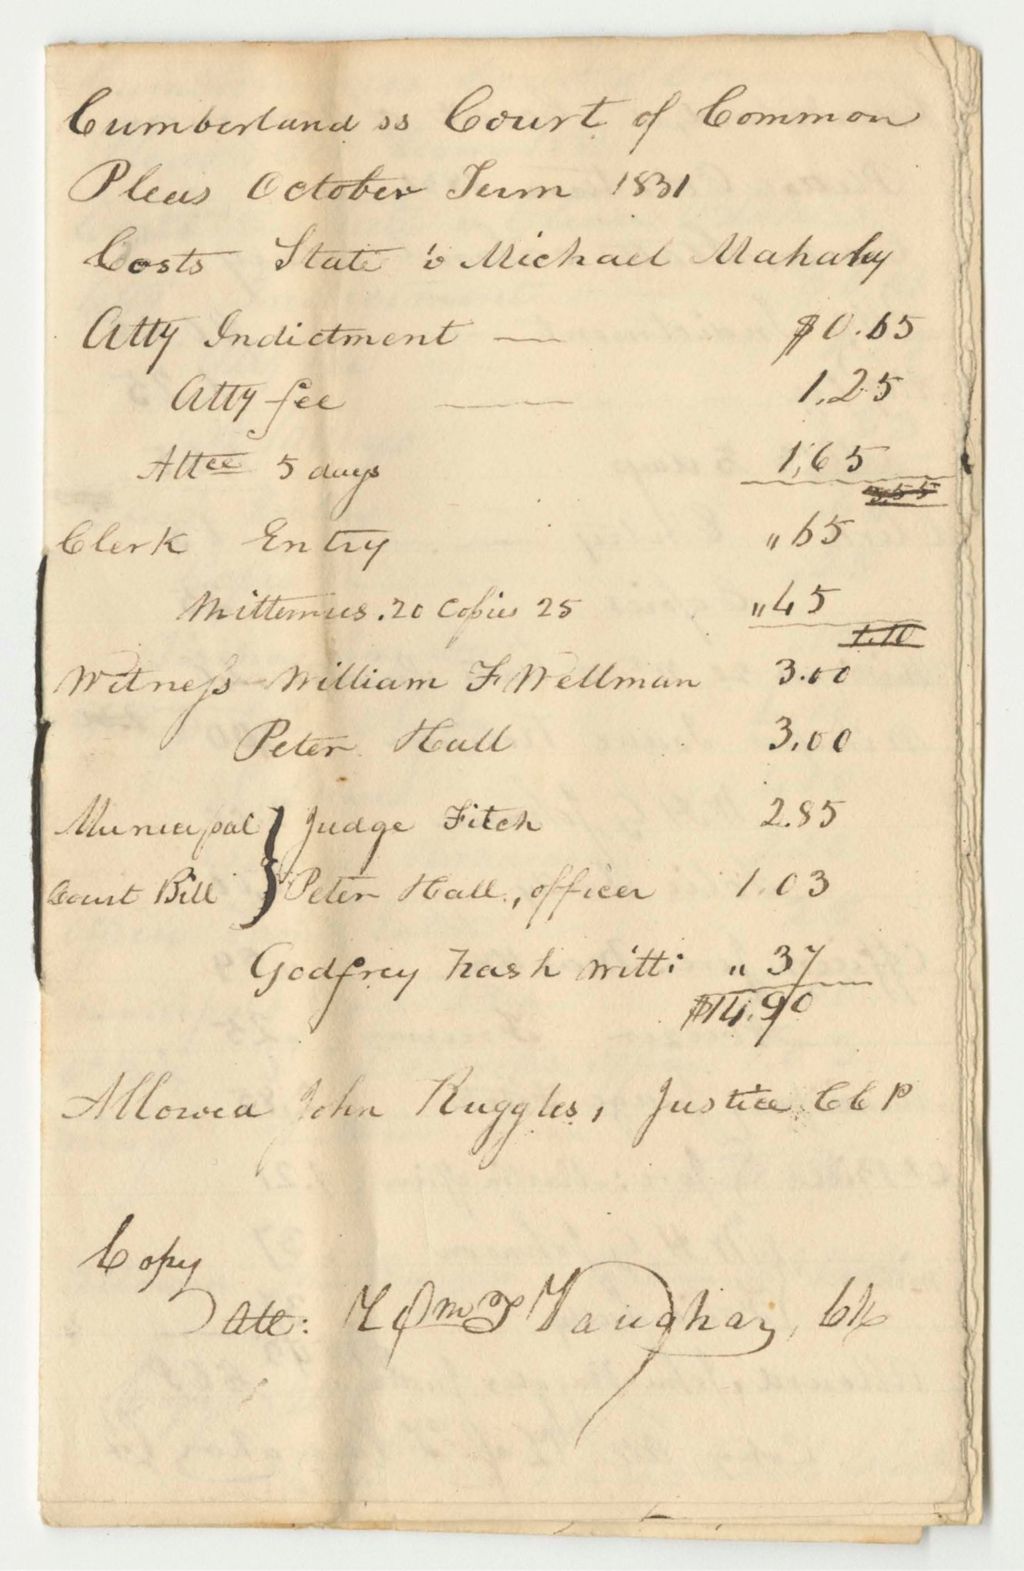 Cumberland ss Court of Common
Pleas October Term 1831
Costs State v Michael Mahaby
Atty Indictment — $0.65
Atty fee — 1.25
Attce 5 days 1.65
3.55
Clerk Entry " 65
Mittimus .20 Copies 25 " 45
1.10
Witness William F Wellman 3.00
Peter Hall 3.00
Municipal } Judge Fitch 2.85
Court Bill } Peter Hall, officer 1.03
Godfrey Nash Witt: " 37
$14.90
Allowed John Ruggles, Justice CCP
Copy
Att: Wm T Vaughan, Clk